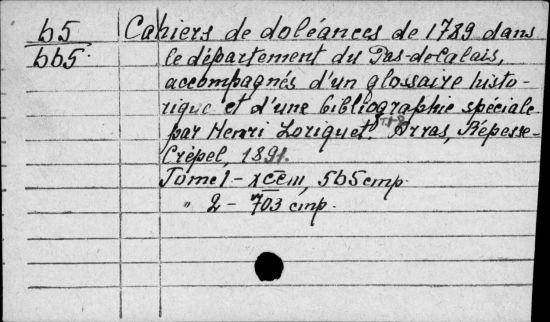 b5 Cahiers de doléances de 1789 dans
bb5. le département du Pas-de-Calais,
accompagnés d'un glossaire histo-
rique et d'une bibliographie spéciale
par Henri Loriquet. T.1-2 Arras, Répessé-
Crépel, 1891.
Tome 1 - XCCIII, 565 стр.
" 2 - 703 стр.